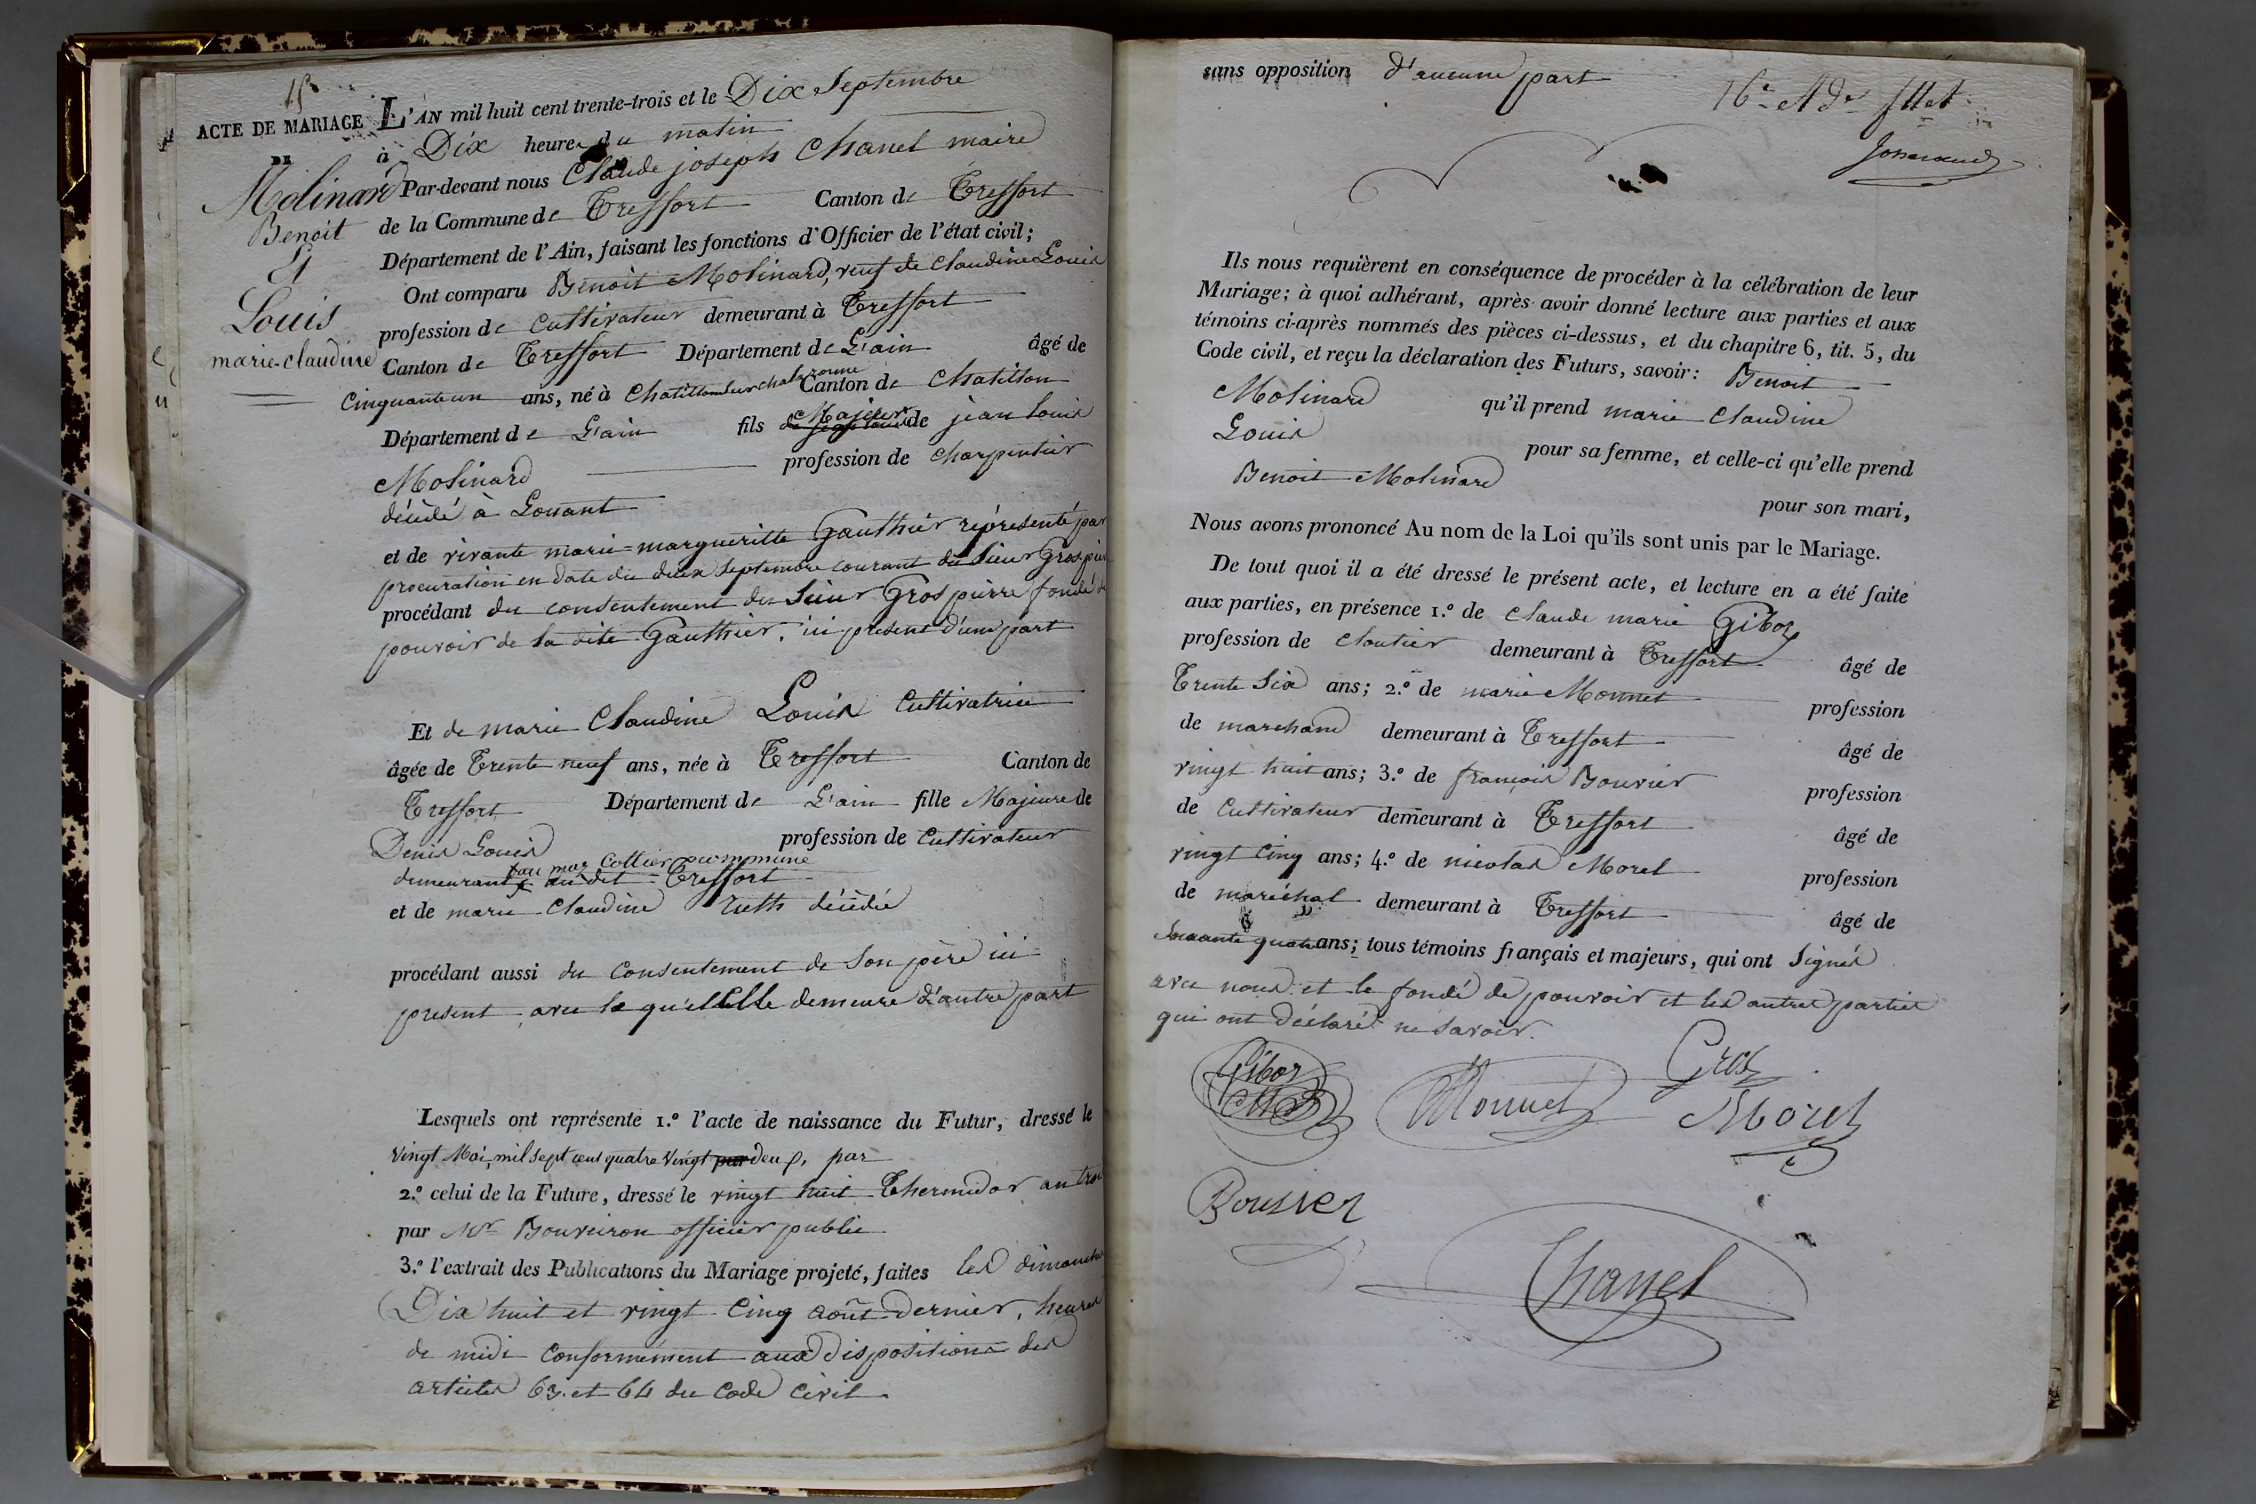 15
ACTE DE MARIAGE
DE
Molinard
Benoit
Et
Louis
marie-claudine
L'AN mil huit cent trente-trois et le Dix Septembre
à Dix heures du matin
Par-devant nous Claude joseph Chanel maire
de la Commune de Treffort Canton de Treffort
Département de l'Ain, faisant les fonctions d'Officier de l'état civil;
Ont comparu Benoit Molinard, veuf de Claudine Louis
profession de Cultivateur demeurant à Treffort
Canton de Treffort Département de L'ain âgé de
Cinquante un ans, né à Chatillon sur chalaronne Canton de Chatillon
Département de L'ain fils Majeur de jean Louis
Molinard profession de Charpentier
décédé à Louant
et de vivante marie-margueritte Gauthier représenté par
procuration en date du deux Septembre courant du Sieur Gros pierre
procédant du consentement du Sieur Gros pierre fondé de
pouvoir de la dite Gauthier, ici présent d'une part
Et de marie Claudine Louis Cultivatrice
âgée de Trente neuf ans, née à Treffort Canton de
Treffort Département de L'ain fille Majeure de
Denis Louis profession de Cultivateur
Collier commune
demeurant au dit Treffort
et de marie Claudine décédée
procédant aussi du consentement de Son père ici
present avec le quel Elle demeure d'autre part
Lesquels ont représente 1.º l'acte de naissance du Futur, dressé le
vingt Mai, mil sept cent quatre vingt deux, par
2.º celui de la Future, dressé le vingt huit Thermidor an trois
par Mr Bouveiron officier public
3.º l'extrait des Publications du Mariage projeté, faites les dimanches
Dix huit et vingt Cinq août Dernier, heures
de midi Conformément aux Dispositions des
articles 63 et 64 du Code Civil
sans opposition d'aucune part
16e
Ils nous requièrent en conséquence de procéder à la célébration de leur
Mariage; à quoi adhérant, après avoir donné lecture aux parties et aux
témoins ci-après nommés des pièces ci-dessus, et du chapitre 6, tit. 5, du
Code civil, et reçu la déclaration des Futurs, savoir: Benoit
Molinard qu'il prend marie Claudine
Louis pour sa femme, et celle-ci qu'elle prend
Benoit Molinard pour son mari,
Nous avons prononcé Au nom de la Loi qu'ils sont unis par le Mariage.
De tout quoi il a été dressé le présent acte, et lecture en a été faite
aux parties, en présence 1.º de Claude marie Giboz
profession de Cloutier demeurant à Treffort âgé de
Trente Six ans; 2.º de marie Monnet profession
de marchand demeurant à Treffort âgé de
vingt huit ans; 3.º de françois Bouvier profession
de Cultivateur demeurant à Treffort âgé de
vingt Cinq ans; 4.º de nicolas Morel profession
de maréchal demeurant à Treffort âgé de
Soixante quatre ans; tous témoins français et majeurs, qui ont Signés
avec nous et le fondé de pouvoir et les autres parties
qui ont déclaré ne Savoir.
Giboz
Monnet
Gros
Morel
Bouvier
Chanel